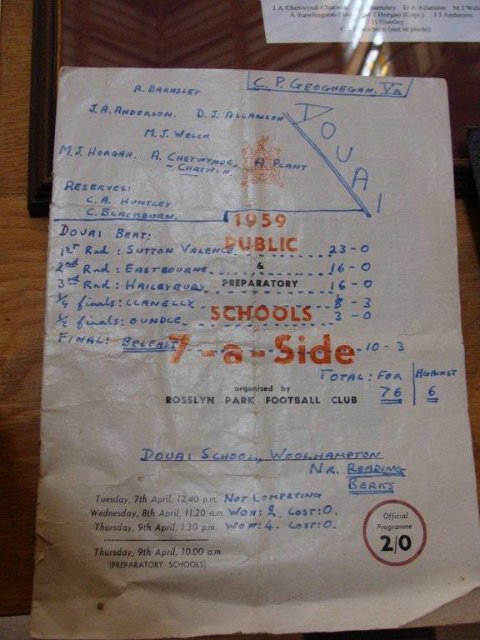 J A Chetwynd-Chatwin
D A Allanson
J I Anderson
(not in photo)
R. BARNSLEY
C. P. GEOGHEGAN. Va
J.A. ANDERSON. D.J. ALLANSON
M.J. WELCH
M.J. HORGAN. A. CHETWYND-CHATWIN. A. PLANT
DOUAI
RESERVES:
C.A. HUNTLEY
C. BLACKBURN.
1959
DOUAI BEAT:
PUBLIC
1ST Rnd: SUTTON VALENCE 23-0
&
2nd Rnd: EASTBOURNE 16-0
PREPARATORY
3rd Rnd: HAILEYBURY 16-0
¼ finals: LLANELLY 8-3
SCHOOLS
½ finals: OUNDLE 3-0
FINAL: BELFAST 10-3
7-a-Side
TOTAL: FOR AGAINST
76 6
organised by
ROSSLYN PARK FOOTBALL CLUB
DOUAI SCHOOL, WOOLHAMPTON
NR. READING
BERKS
Tuesday, 7th April, 12.40 p.m. NOT COMPETING
Wednesday, 8th April, 11.20 a.m. WON: 2. LOST: 0.
Thursday, 9th April, 1.30 p.m. WON: 4. LOST: 0.
Thursday, 9th April, 10.00 a.m.
(PREPARATORY SCHOOLS)
Official
Programme
2/0